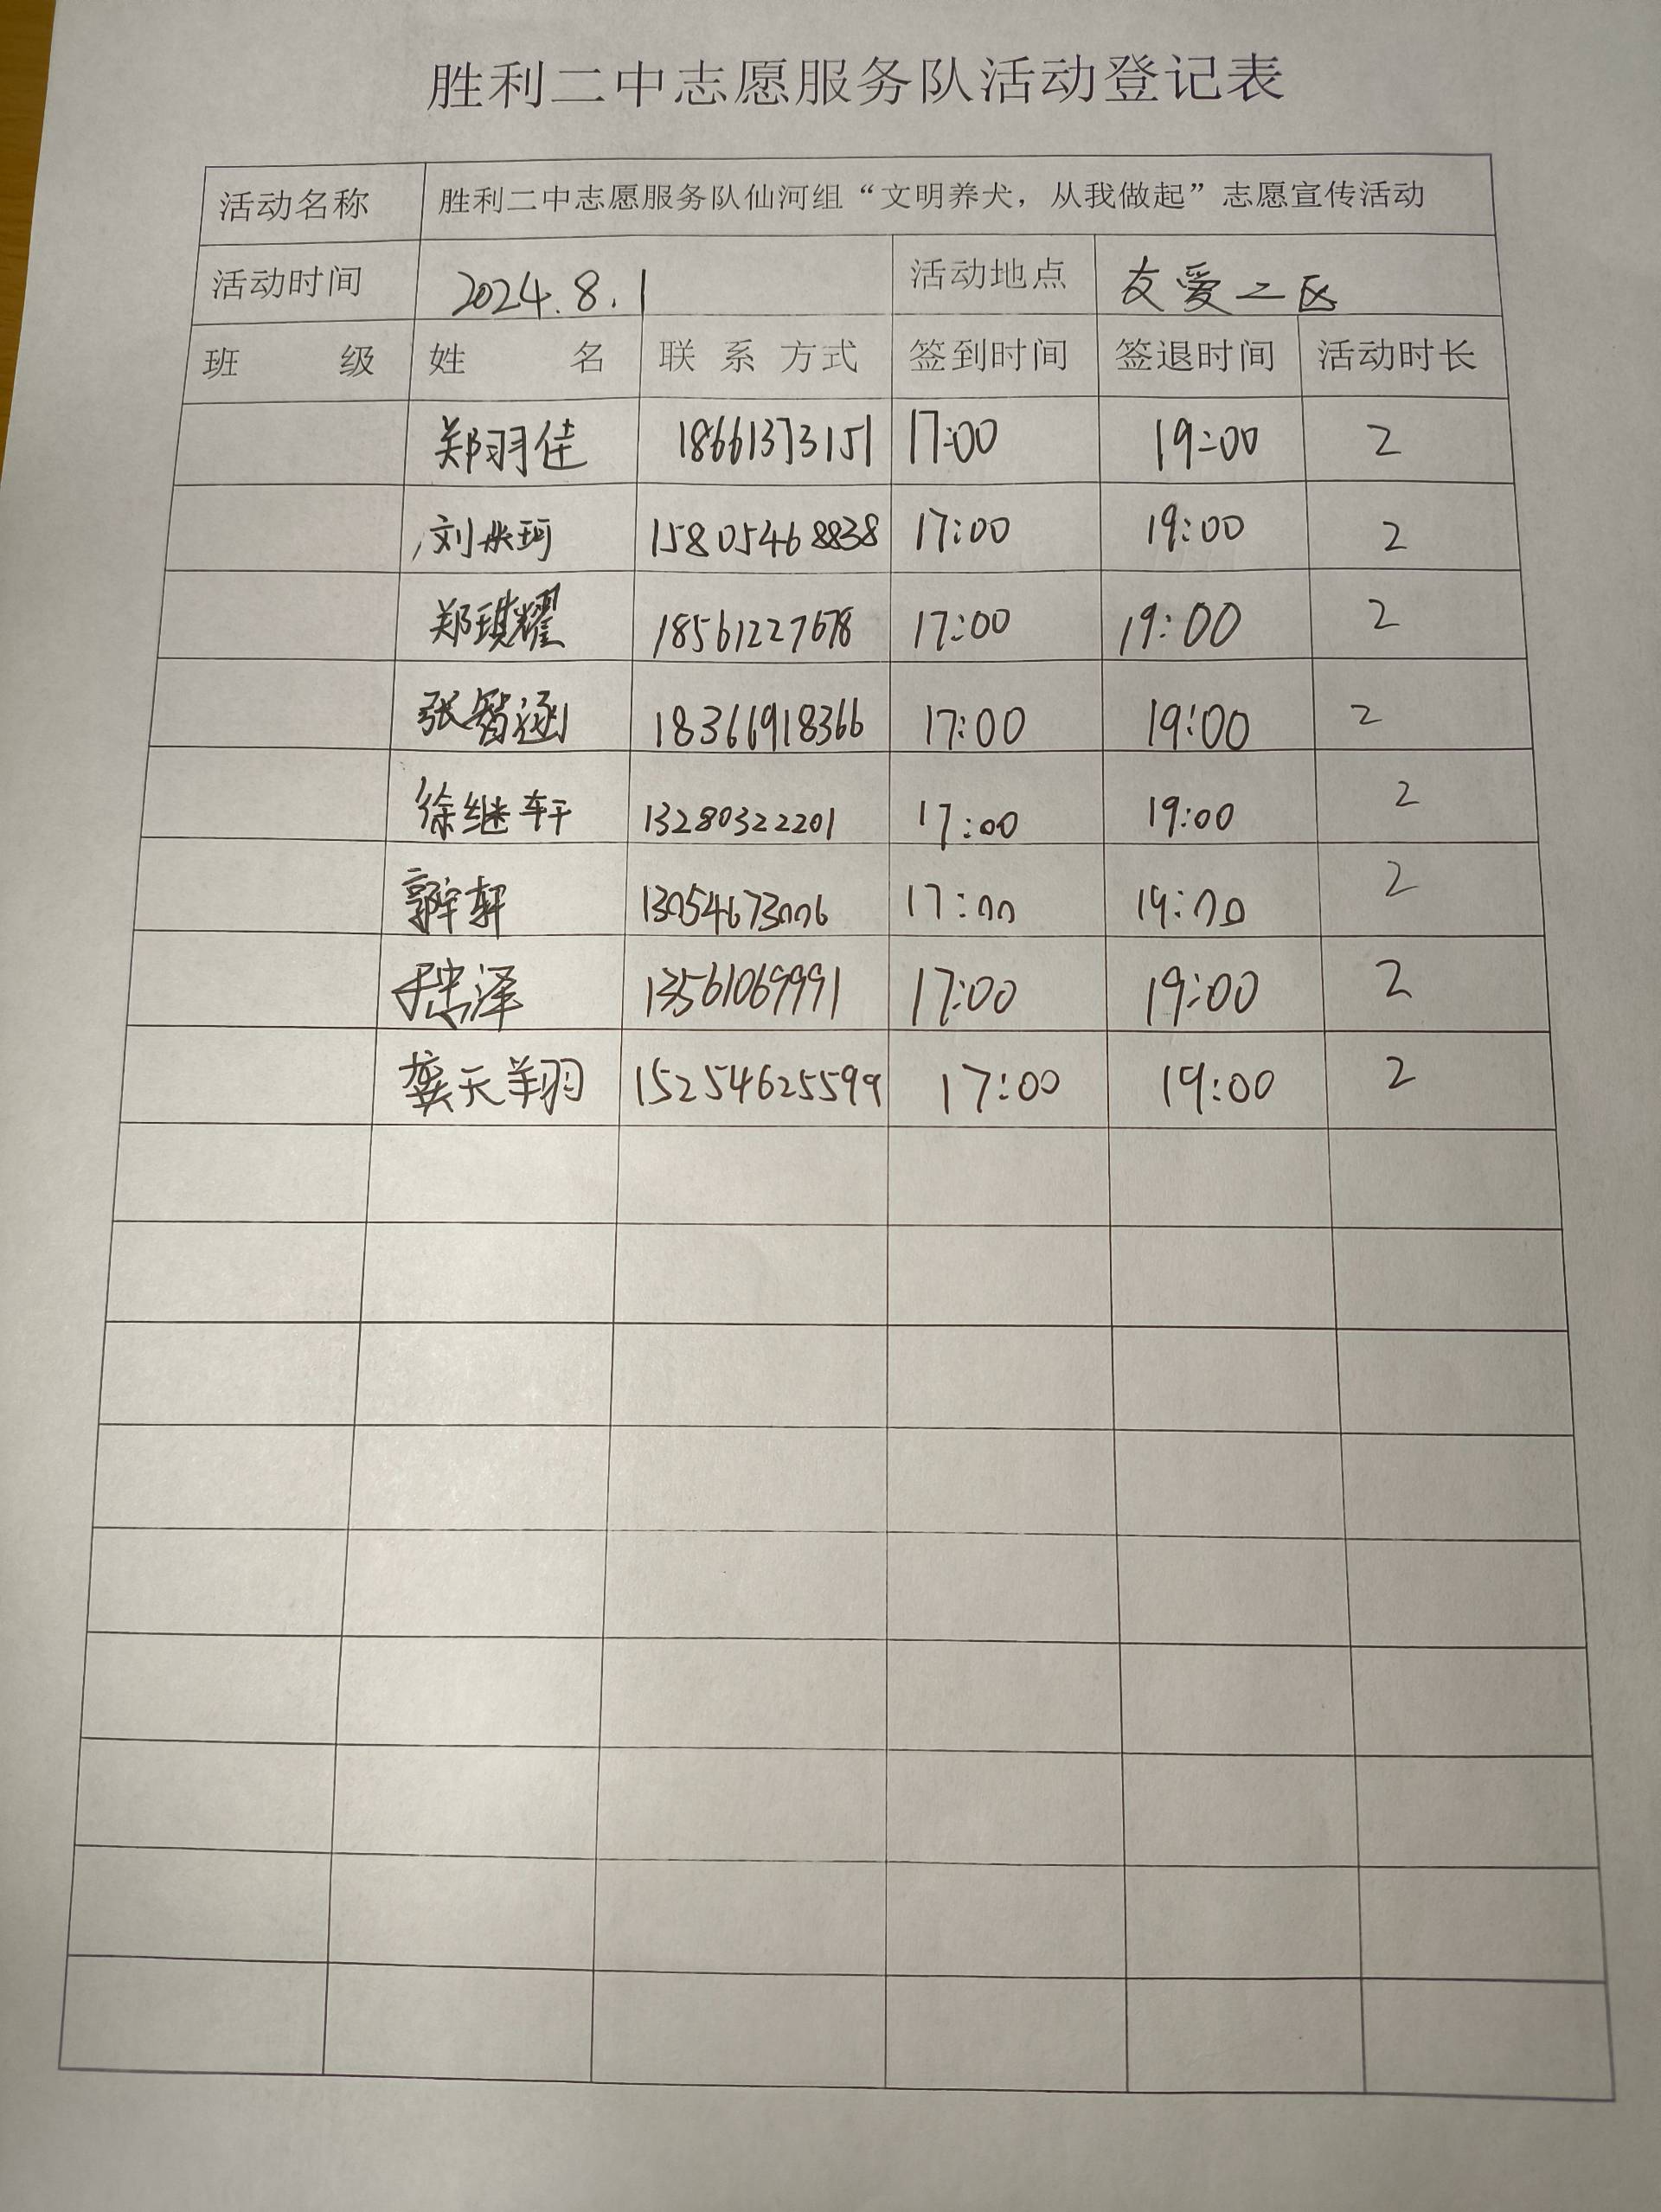 胜利二中志愿服务队活动登记表
活动名称 胜利二中志愿服务队仙河组“文明养犬，从我做起”志愿宣传活动
活动时间 2024.8.1 活动地点 友爱二区
班 级 姓 名 联 系 方式 签到时间 签退时间 活动时长
郑羽佳 18661373151 17:00 19:00 2
15805468838 17:00 19:00 2
郑琪耀 18561227678 17:00 19:00 2
张智涵 18366918366 17:00 19:00 2
徐继轩 13280322201 17:00 19:00 2
13054673006 17:00 19:00 2
13561069991 17:00 19:00 2
龚天翔 15254625599 17:00 19:00 2